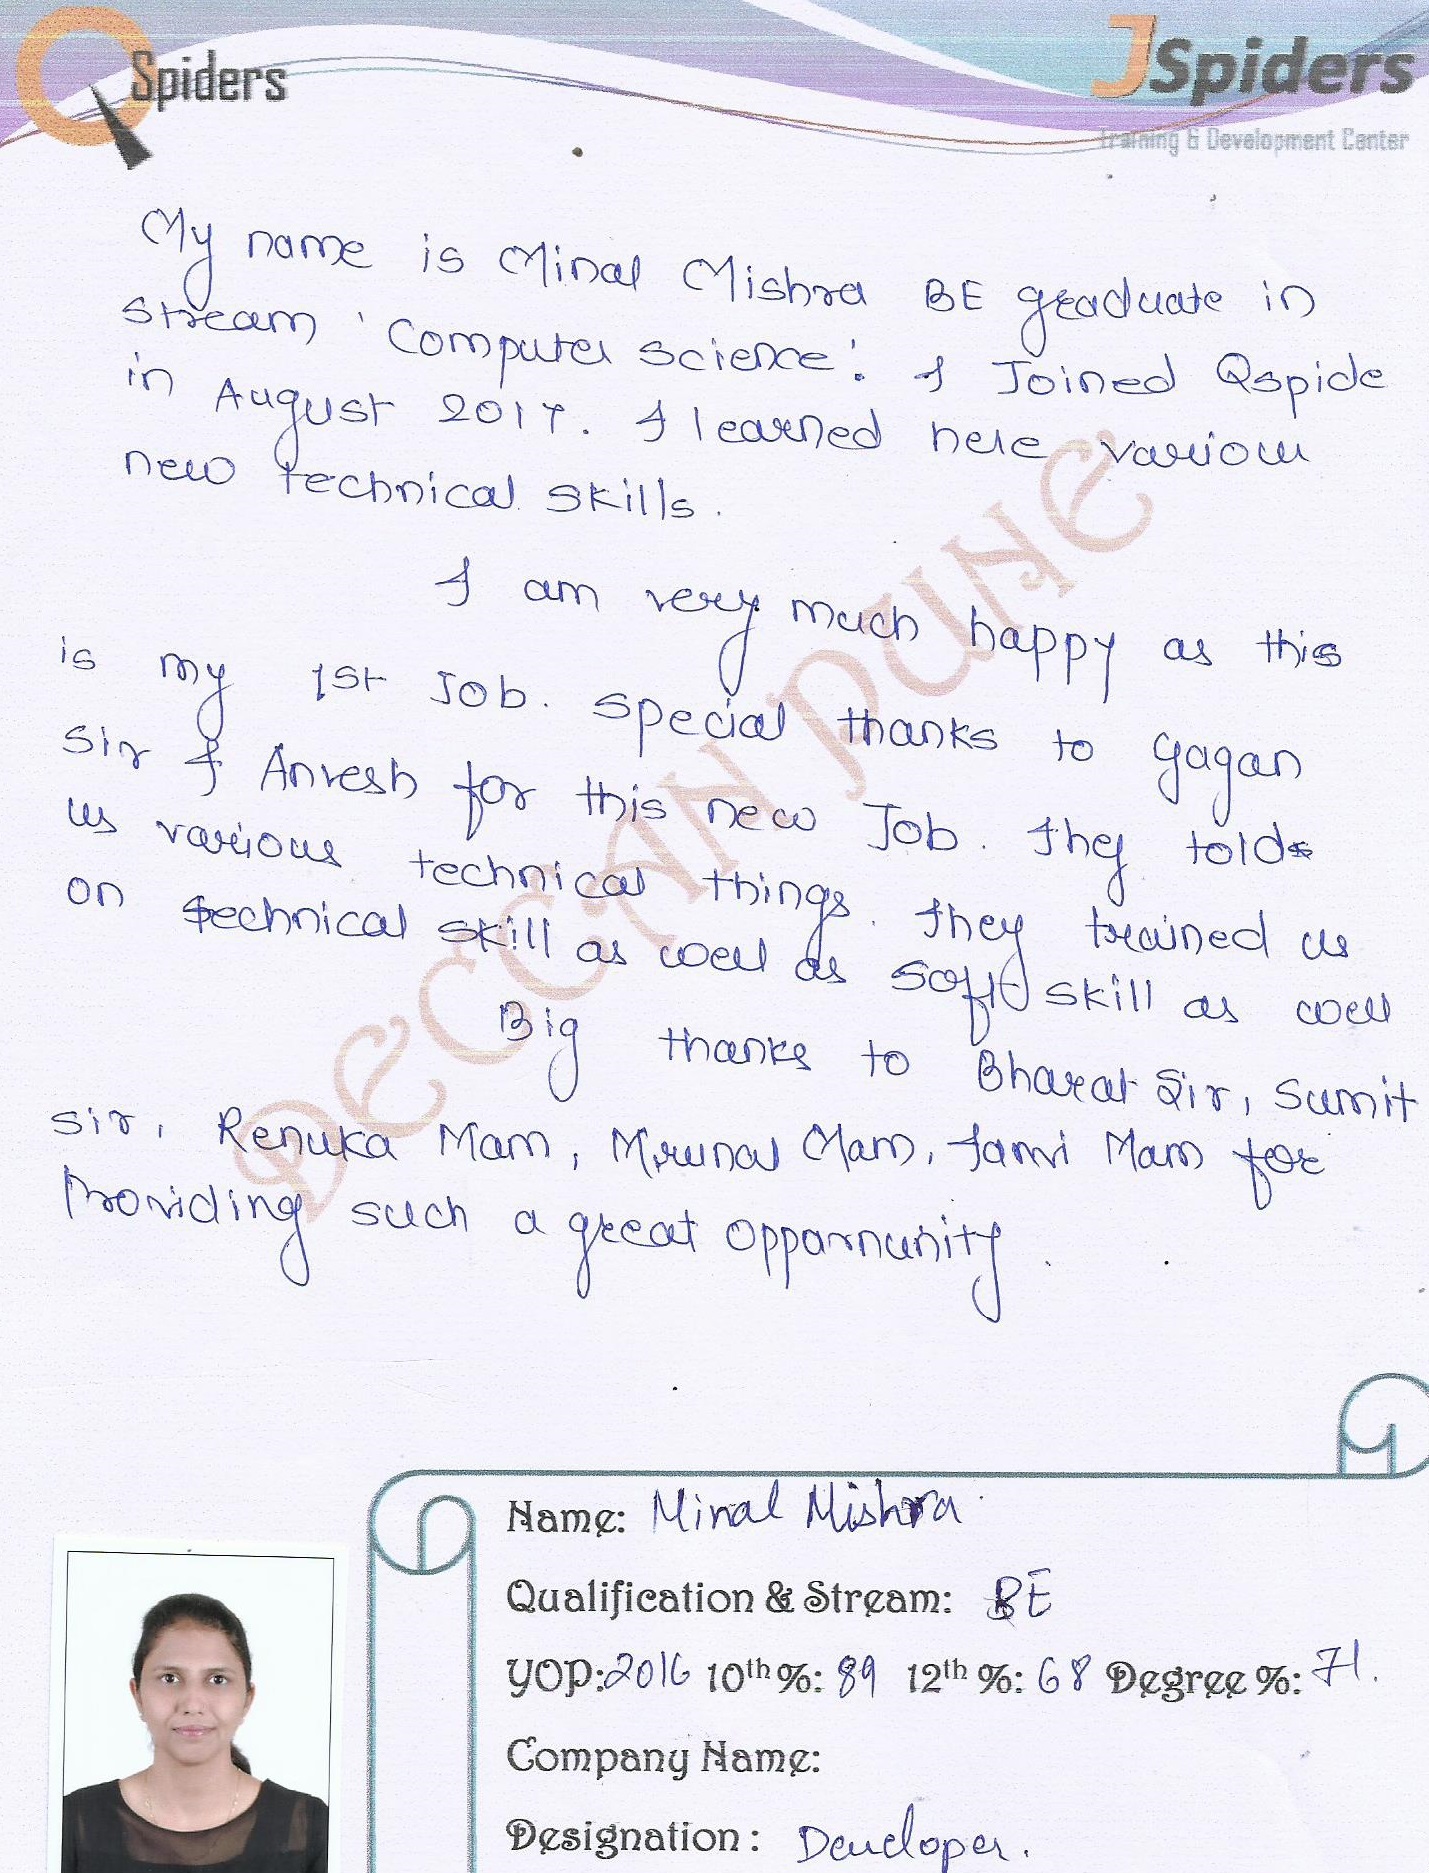 QSpiders
JSpiders
Training & Development Center
My name is Minal Mishra BE graduate in
stream 'Computer science'. I Joined Qspide
in August 2017. I learned here various
new technical skills.
I am very much happy as this
is my 1st Job. special thanks to Gagan
Sir & Anvesh for this new Job. They told
us various technical things. They trained us
on technical skill as well as soft skill as well
Big thanks to Bharat Sir, Sumit
Sir, Renuka Mam, Mrunal Mam, Tanvi Mam for
Providing such a great opparnunity.
DECCAN PUNE
Name: Minal Mishra
Qualification & Stream: BE
YOP: 2016 10th %: 89 12th %: 68 Degree %: 71.
Company Name:
Designation: Developer.